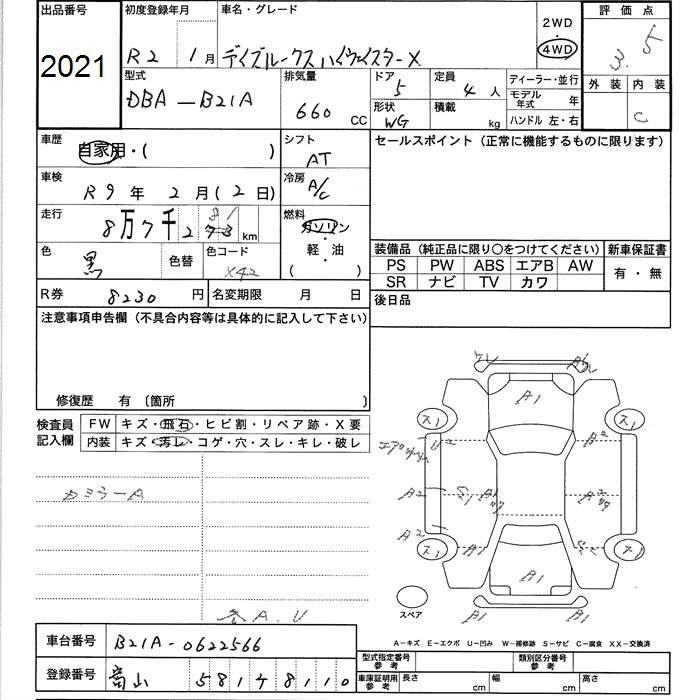 出品番号 初度登録年月 車名・グレード 2WD 評価点
2021 R2 1月 デイズルークス ハイウェイスターX 4WD 3.5
型式 排気量 ドア 定員 ディーラー・並行 外装 内装
DBA-B21A 660 CC 5 4 人 モデル年式 年
形状 WG 積載 kg ハンドル 左・右 C
車歴 自家用・( ) シフト AT セールスポイント(正常に機能するものに限ります)
車検 R9年 2月(2日) 冷房 A/C
走行 8万7千2 81 km 燃料 ガソリン・軽油 ( )
色 黒 色替 色コード X42 装備品(純正品に限り○をつけてください) 新車保証書
PS PW ABS エアB AW 有・無
SR ナビ TV カワ
R券 8230 円 名変期限 月 日 後日品
注意事項申告欄(不具合内容等は具体的に記入して下さい)
修復歴 有 〔箇所 〕
検査員記入欄 FW キズ・飛石・ヒビ割・リペア跡・X要
内装 キズ・汚レ・コゲ・穴・スレ・キレ・破レ
カミラーA
A1
ス1 ス1
U2 A2
A2 A1
A2
ス1 ス1
A1 B1
スペア B1 B1
多A.U
A-キズ E-エクボ U-凹み W-補修跡 S-サビ C-腐食 XX-交換済
車台番号 B21A-0622566 型式指定番号 参考 類別区分番号 参考
登録番号 富山 581 8110 車庫証明用 参考 長さ cm 幅 cm 高さ cm